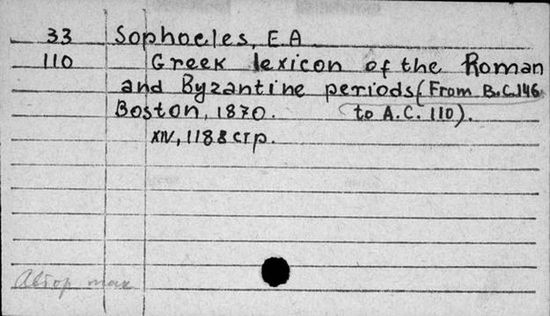 33 Sophocles, E.A
110 Greek lexicon of the Roman
and Byzantine periods (From B.C.146
Boston, 1870. to A.C. 110).
XIV, 1188 стр.